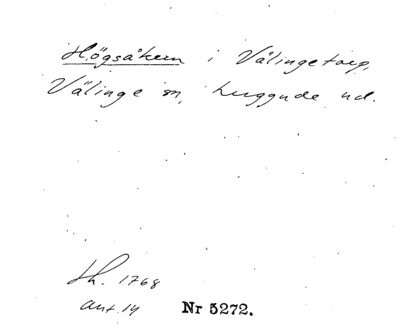 Högsåkern i Välingetorp,
Välinge sn, Luggude hd.
Lh. 1768
Ant. 14 Nr 5272.